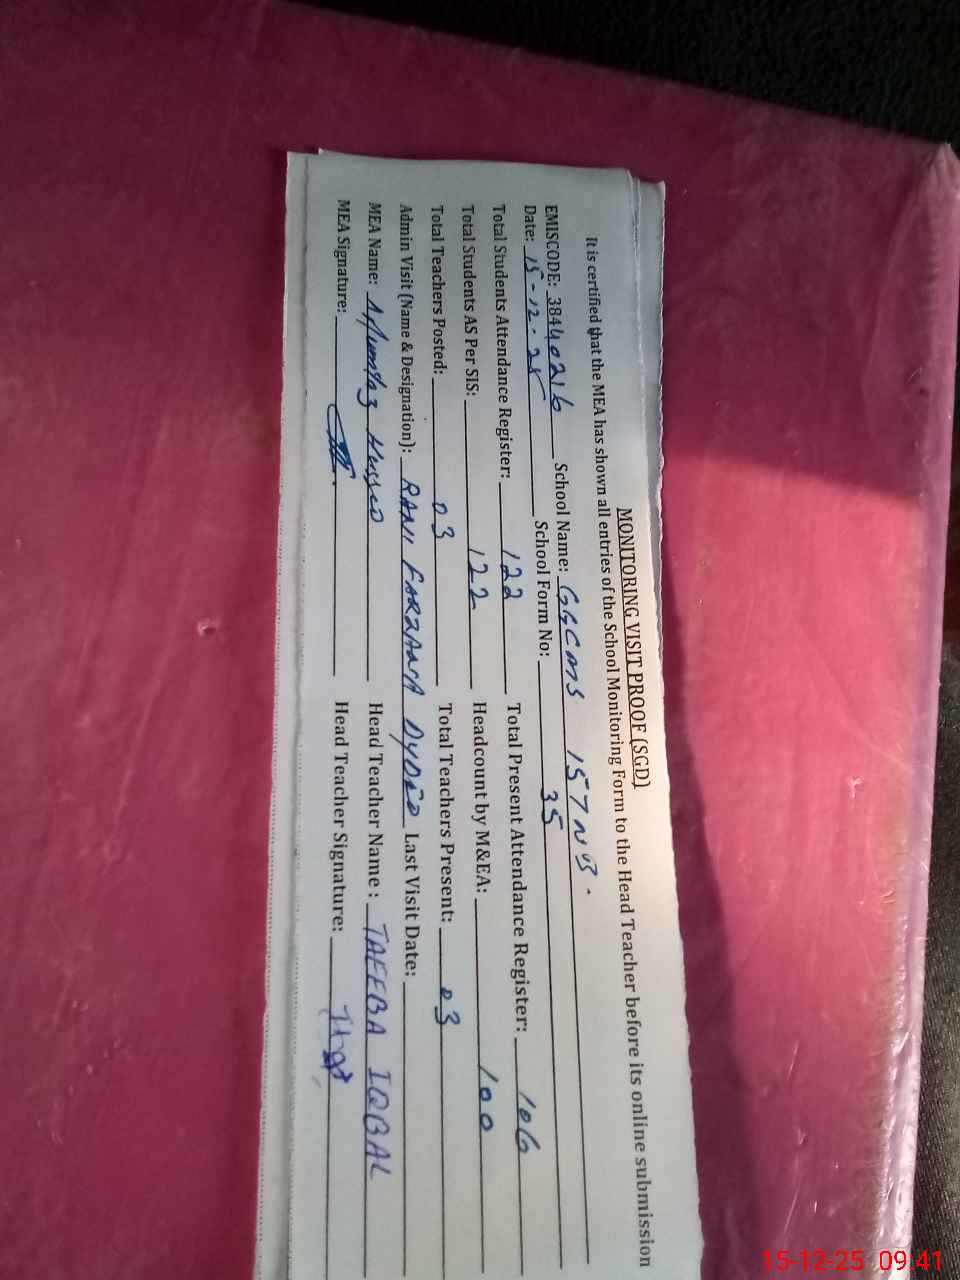 MONITORING VISIT PROOF (SGD)
It is certified that the MEA has shown all entries of the School Monitoring Form to the Head Teacher before its online submission
EMISCODE: 38440216 School Name: GGCMS 157 NB.
Date: 15-12-25 School Form No: 35
Total Students Attendance Register: 122 Total Present Attendance Register: 106
Total Students AS Per SIS: 122 Headcount by M&EA: 100
Total Teachers Posted: 03 Total Teachers Present: 03
Admin Visit (Name & Designation): RANI FARZANA DYDEO Last Visit Date:
MEA Name: Head Teacher Name : TAEEBA IQBAL
MEA Signature: Head Teacher Signature:
15-12-25 09:41